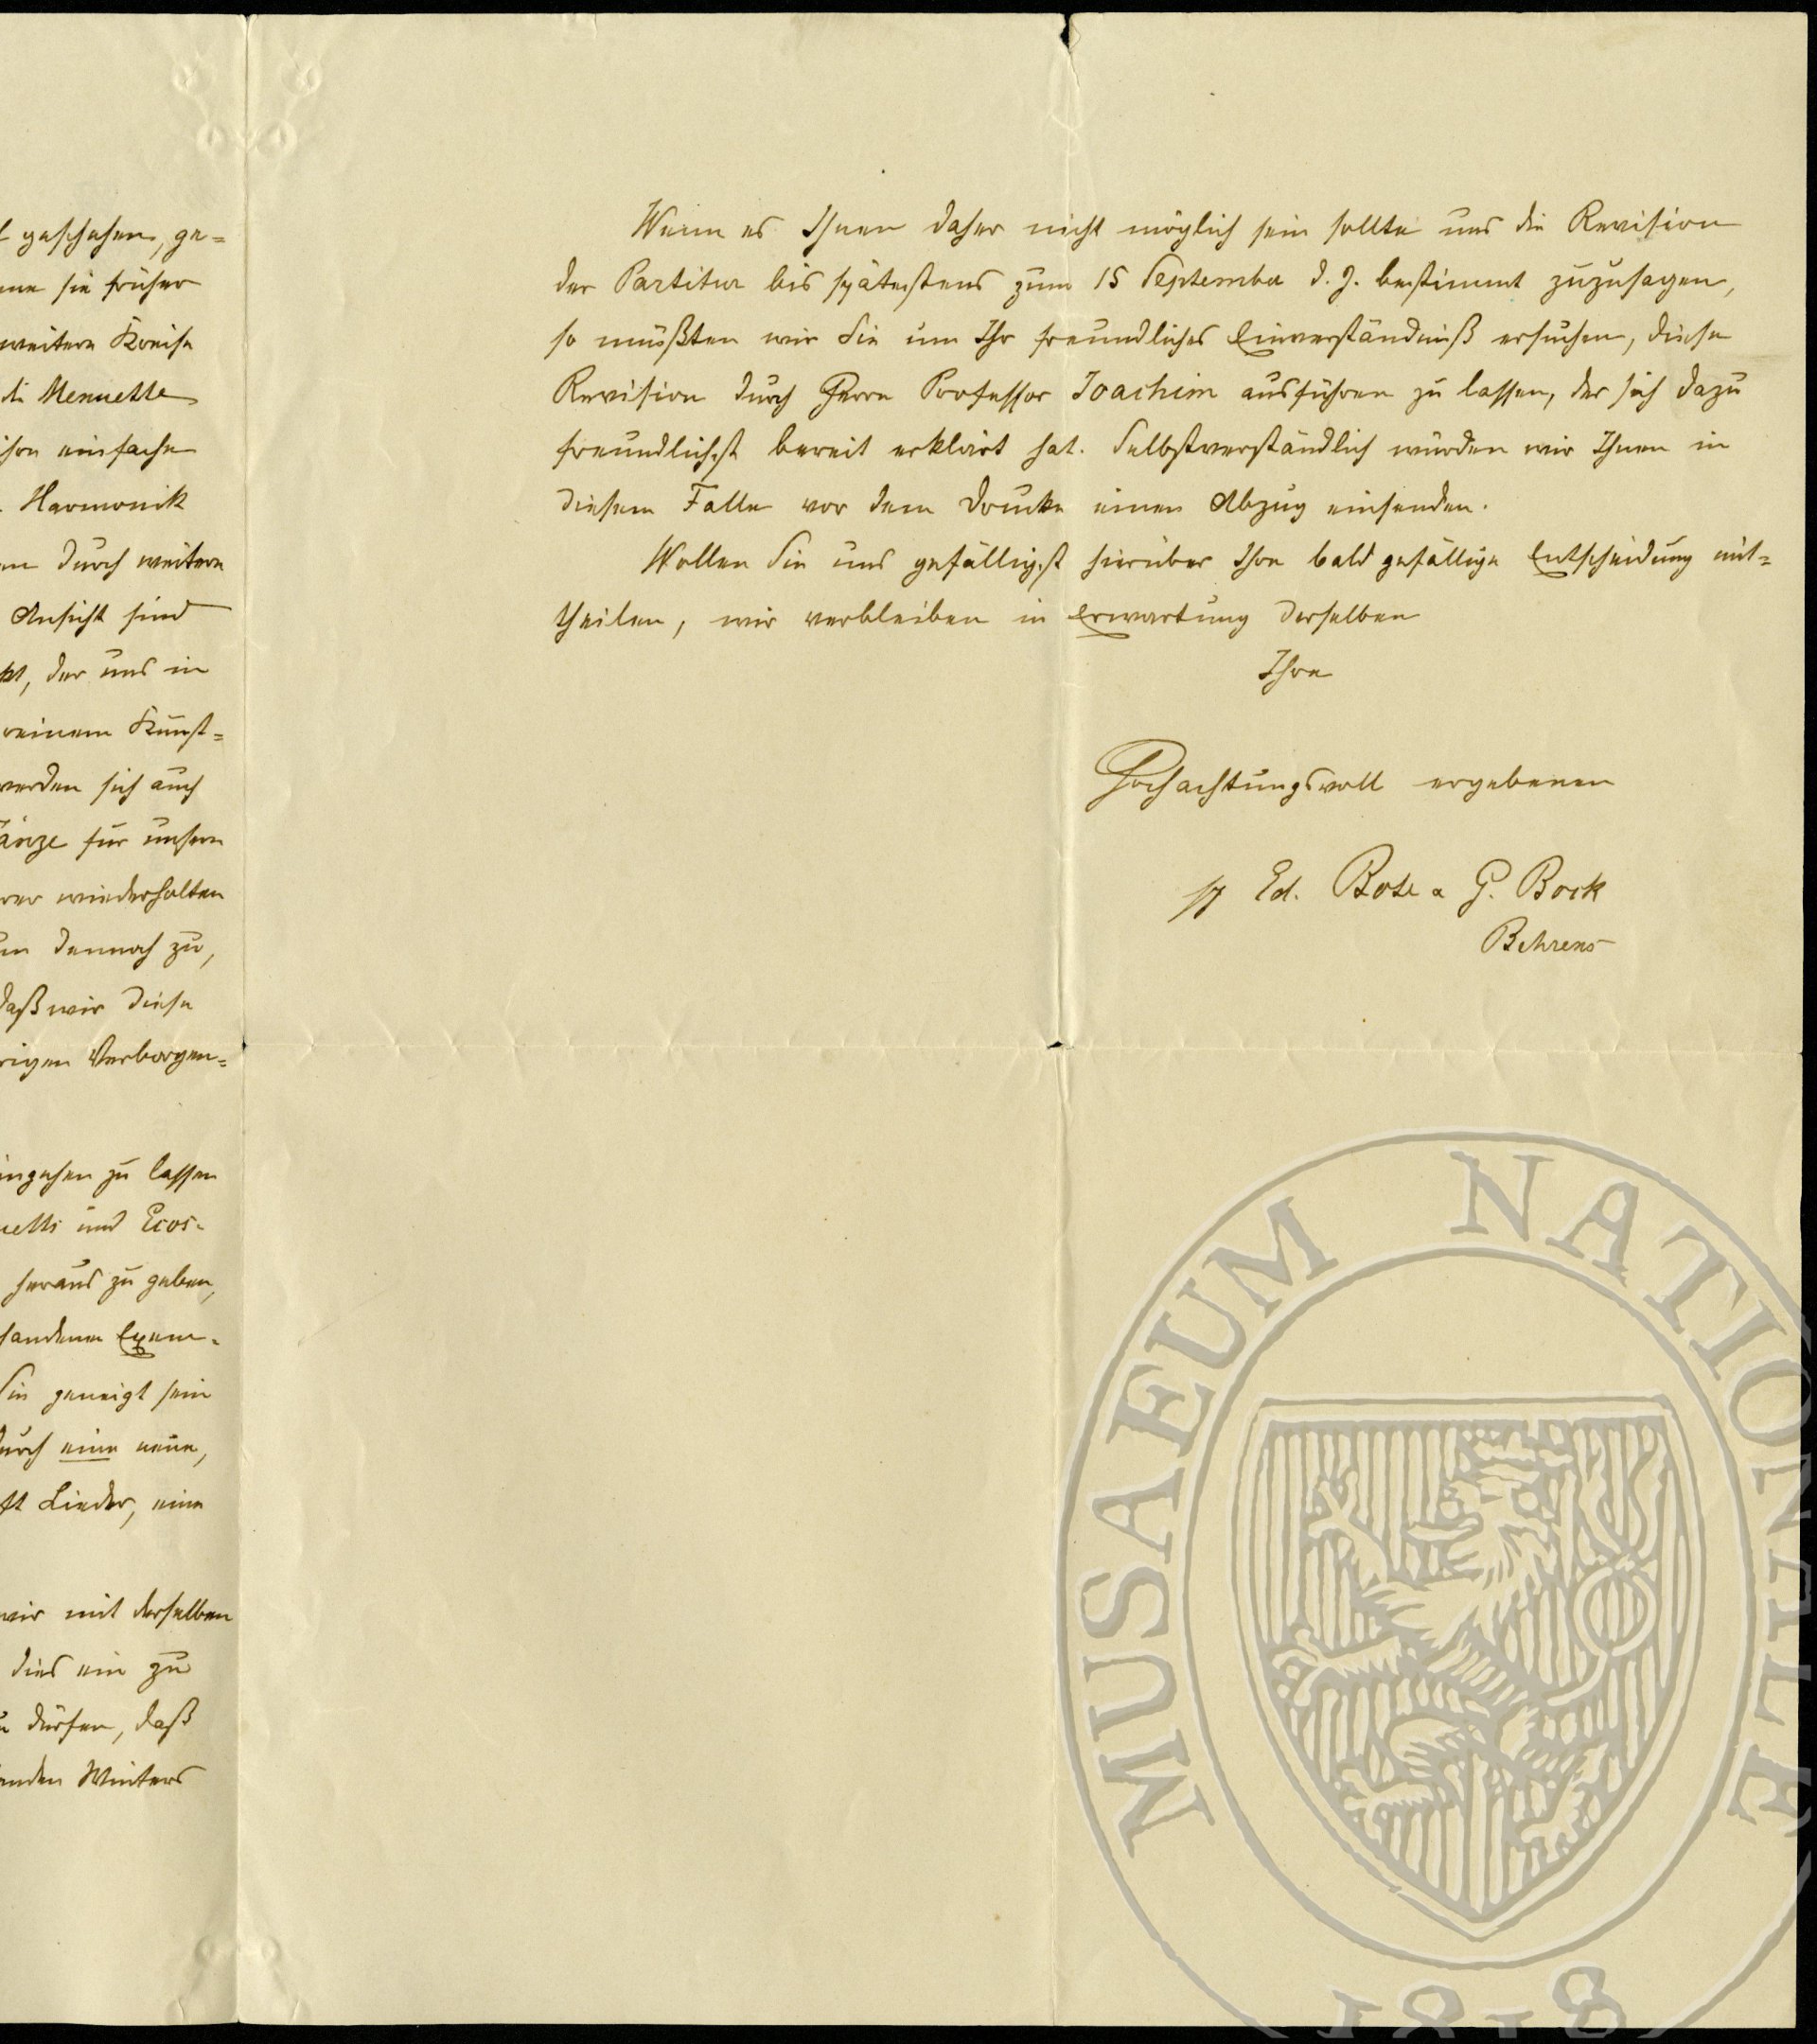 geschehen, ge=
sie früher
weitere Kreise
di Menuette
einfache
Harmonik
durch weitere
Ansicht sind
der uns in
reinem Kunst=
werden sich auch
für unsern
wiederholten
dennoch zu,
daß wir diese
rigen Verborgen=
ingehen zu lassen
uetti und Ecos=
heraus zu geben,
handenen Exem=
Sie geneigt sein
durch eine neue,
ft Lieder, eine
wir mit derselben
dies ein zu
dürfen, daß
enden Winters
Wenn es Ihnen daher nicht möglich sein sollte uns die Revision
der Partitur bis spätestens zum 15 September d. J. bestimmt zuzusagen,
so müßten wir Sie um Ihr freundliches Einverständniß ersuchen, diese
Revision durch Herrn Professor Joachim ausführen zu lassen, der sich dazu
freundlichst bereit erklärt hat. Selbstverständlich würden wir Ihnen in
diesem Falle vor dem Drucke einen Abzug einsenden.
Wollen Sie uns gefälligst hierüber Ihre bald gefällige Entscheidung mit=
theilen, wir verbleiben in Erwartung derselben
Ihre
Hochachtungsvoll ergebenen
Ed. Bote & G. Bock
Behrens
MUSAEUM NATIONALE
1818